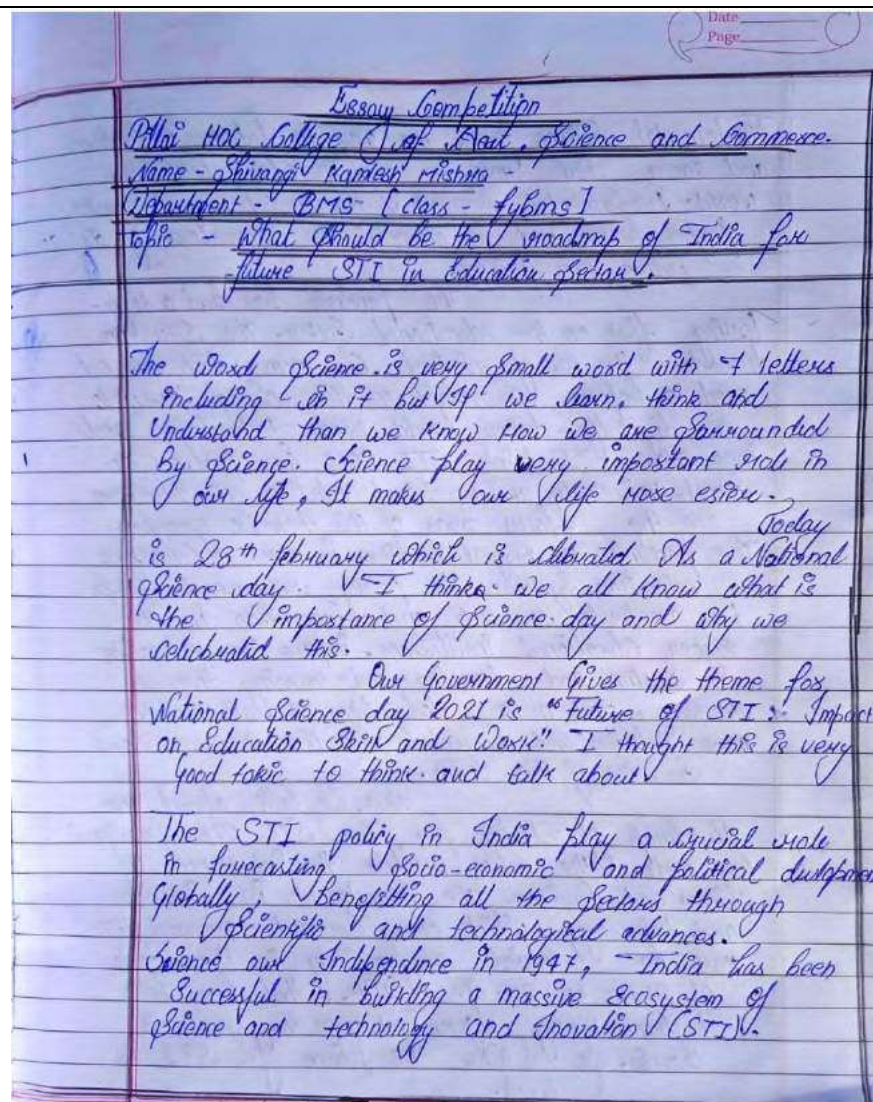 Date
Page
Essay Competition
Pillai HOC College of Aart, Science and Commerce.
Name - Shivangi Kamlesh Mishra -
Department - BMS - [class - fybms]
Topic - What should be the roadmap of India for
future STI in Education Sector.
The word science is very small word with 7 letters
including in it but If we learn, think and
Understand than we know How we are surrounded
By science. Science play very important role in
our life, It makes our life more esier.
Today
is 28th february which is clebrated As a National
Science day. I think we all know what is
the importance of science day and why we
celicbrated this.
Our Government Gives the theme for
National Science day 2021 is "Future of STI: Impact
on Education Skill and Work" I thought this is very
good tokic to think and talk about
The STI policy in India play a crucial role
in forecasting socio-economic and political
Globally, Benefitting all the sectors through
scientific and technological advances.
Science our Indipendince in 1947, India has been
Successful in building a massive Ecosystem of
science and technology and Inovation (STI).